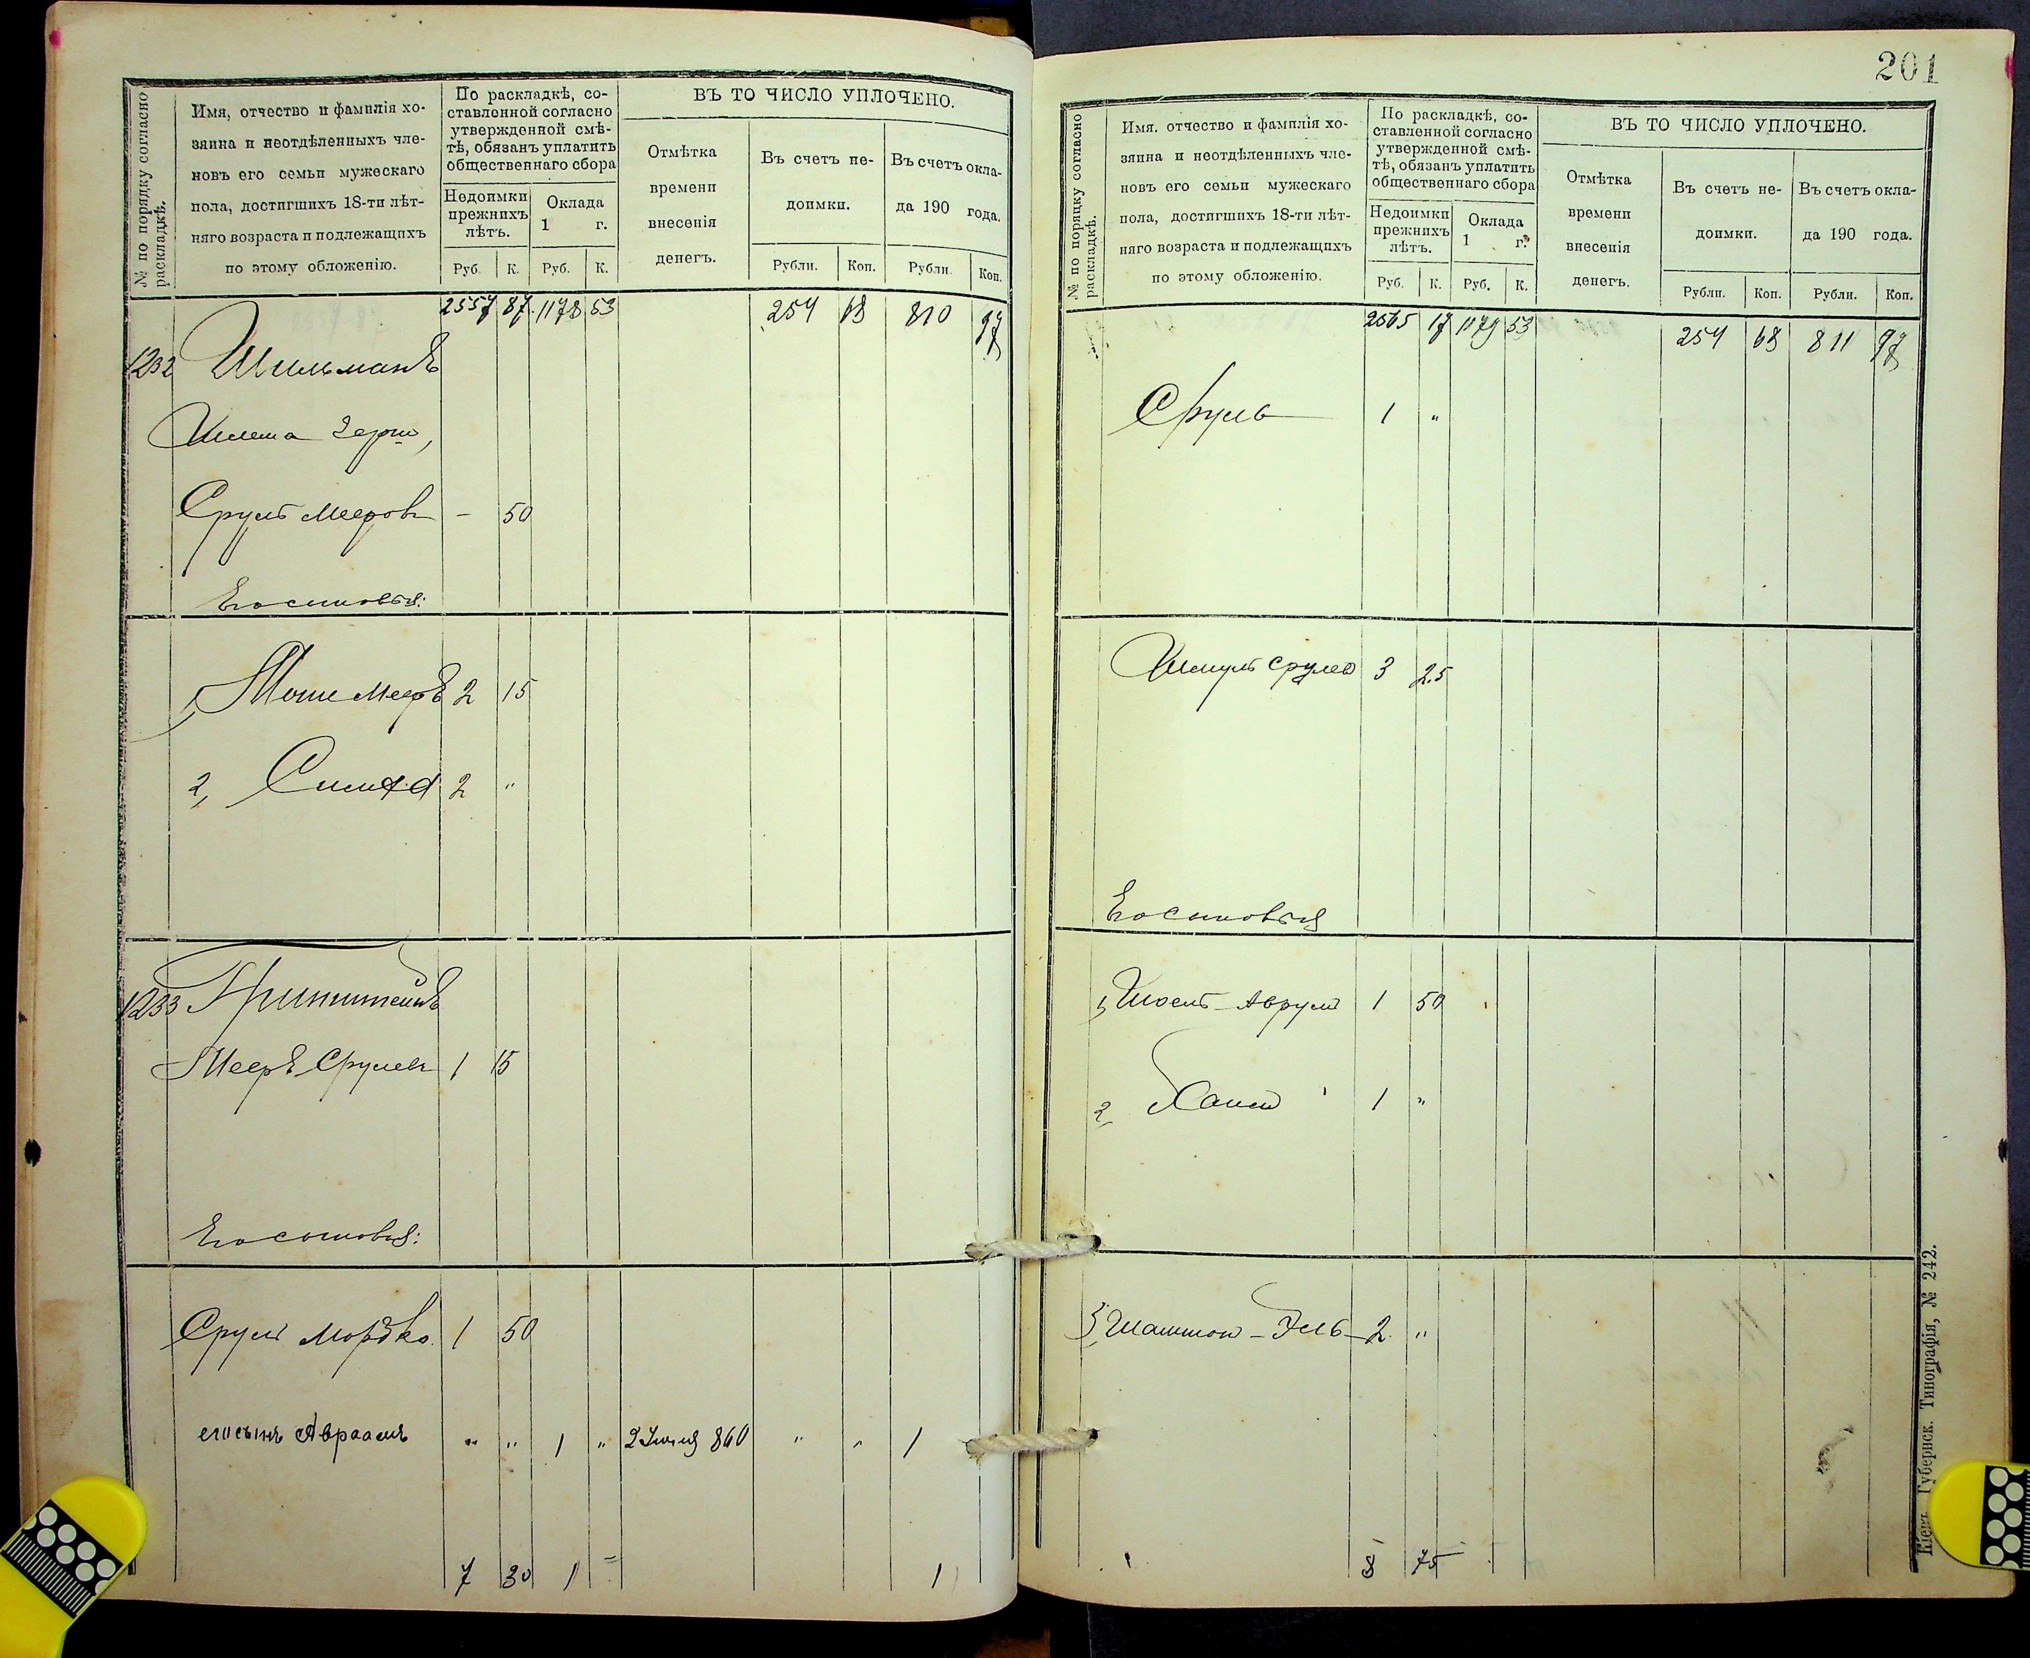 № по порядку согласно раскладкѣ.
Имя, отчество и фамилія хо-
зяина и неотдѣленныхъ чле-
новъ его семьи мужескаго
пола, достигшихъ 18-ти лѣт-
няго возраста и подлежащихъ
по этому обложенію.
По раскладкѣ, со-
ставленной согласно
утвержденной смѣ-
тѣ, обязанъ уплатить
общественнаго сбора
Недоимки
прежнихъ
лѣтъ.
Оклада
1 г.
Руб. К. Руб. К.
ВЪ ТО ЧИСЛО УПЛОЧЕНО.
Отмѣтка
времени
внесенія
денегъ.
Въ счетъ не-
доимки.
Въ счетъ окла-
да 190 года.
Рубли. Коп. Рубли. Коп.
2557 87 1178 53 254 68 810 97
1232 Шильманъ
Шлема Герш,
Сруль Мееров – 50
Его сыновья:
1, Мошо Мееръ 2 15
2, Симха 2 "
1233 Гринштейнъ
Мееръ Срулев 1 15
Его сыновья:
Сруль Мордко 1 50
его сынъ Авраамъ " " 1 " 2 Іюля 860 " " 1
7 30 1 – 1
201
№ по порядку согласно раскладкѣ.
Имя, отчество и фамилія хо-
зяина и неотдѣленныхъ чле-
новъ его семьи мужескаго
пола, достигшихъ 18-ти лѣт-
няго возраста и подлежащихъ
по этому обложенію.
По раскладкѣ, со-
ставленной согласно
утвержденной смѣ-
тѣ, обязанъ уплатить
общественнаго сбора
Недоимки
прежнихъ
лѣтъ.
Оклада
1 г.
Руб. К. Руб. К.
ВЪ ТО ЧИСЛО УПЛОЧЕНО.
Отмѣтка
времени
внесенія
денегъ.
Въ счетъ не-
доимки.
Въ счетъ окла-
да 190 года.
Рубли. Коп. Рубли. Коп.
2565 17 1179 53 254 68 811 97
Сруль 1 "
Шмуль Срулев 3 25
Его сыновья
1, Иосель-Аврум 1 50
2, Хаим 1 "
3, -Эль 2 "
8 75
Кіевъ Губернск. Типографія, № 242.